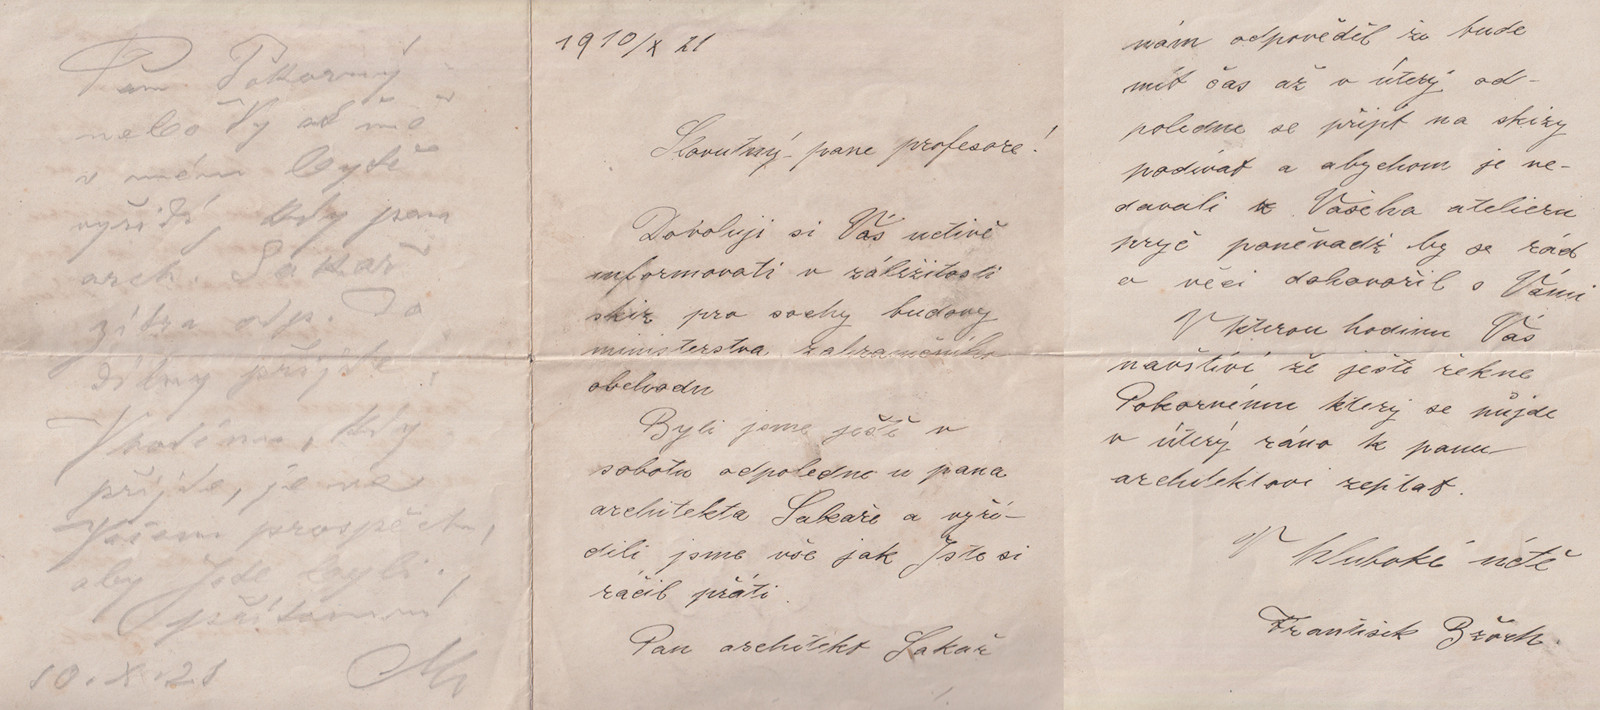 Pan Pokorný
nebo Vy ať mě
v mém bytě
vyřídí, kdy pan
arch. Sakař
zítra odp. do
dílny přijde.
V hodinu, kdy
přijde, je ve
Vašem prospěchu,
aby jste byli
přítomni
10.X.21
1910/X 21
Slovutný pane profesore!
Dovoluji si Vás uctivě
informovati v záležitosti
skiz pro sochy budovy
ministerstva zahraničního
obchodu
Byli jsme ještě v
sobotu odpoledne u pana
architekta Sakaře a vyří-
dili jsme vše jak Jste si
ráčil přáti.
Pan architekt Sakař
nám odpověděl že bude
mít čas až v úterý od-
poledne se přijít na skizy
podívat a abychom je ne-
davali z Vašeho atelieru
pryč poněvadž by se rád
o věci dohovořil s Vámi
V kterou hodinu Vás
navštíví že ještě řekne
Pokornému který se půjde
v úterý ráno k panu
architektovi zeptat.
V hluboké úctě
František